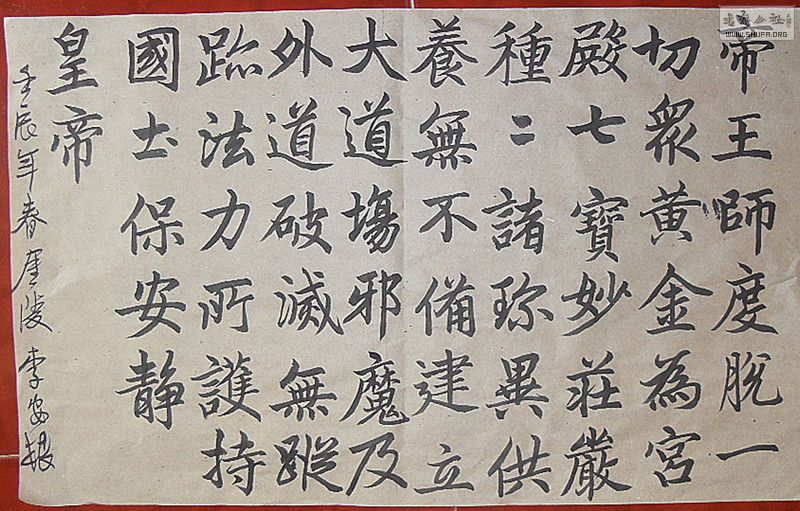 帝王師度脱一
切眾黄金為宮
殿七寶妙莊嚴
種二諸珎異供
養無不備建立
大道塲邪魔及
外道破滅無蹤
跡法力所護持
國土保安静
皇帝
壬辰年春陵李
書法公社
WWW.SHUFA.ORG